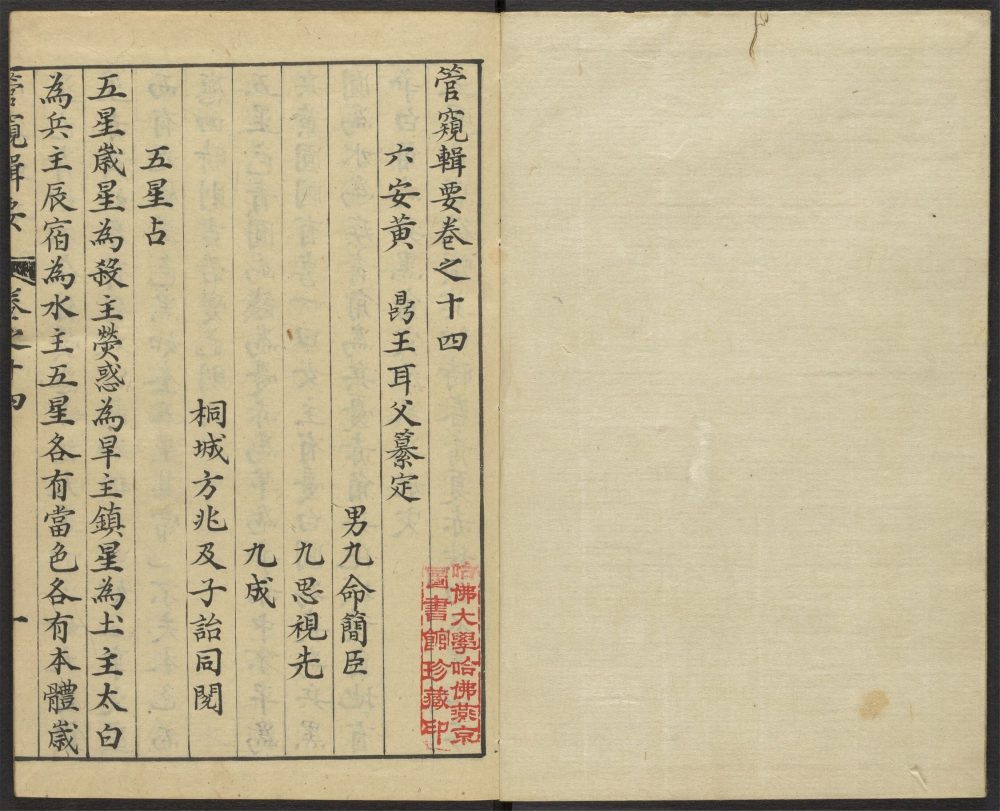 管窺輯要卷之十四
六安黃　鼎玉耳父纂定
男九命簡臣
九思視先
九成
桐城方兆及子詒同閱
五星占
五星歲星為殺主熒惑為旱主鎮星為土主太白
為兵主辰宿為水主五星各有當色各有本體歲
管窺輯要　卷之十四　一
哈佛大學哈佛燕京
圖書館珍藏印